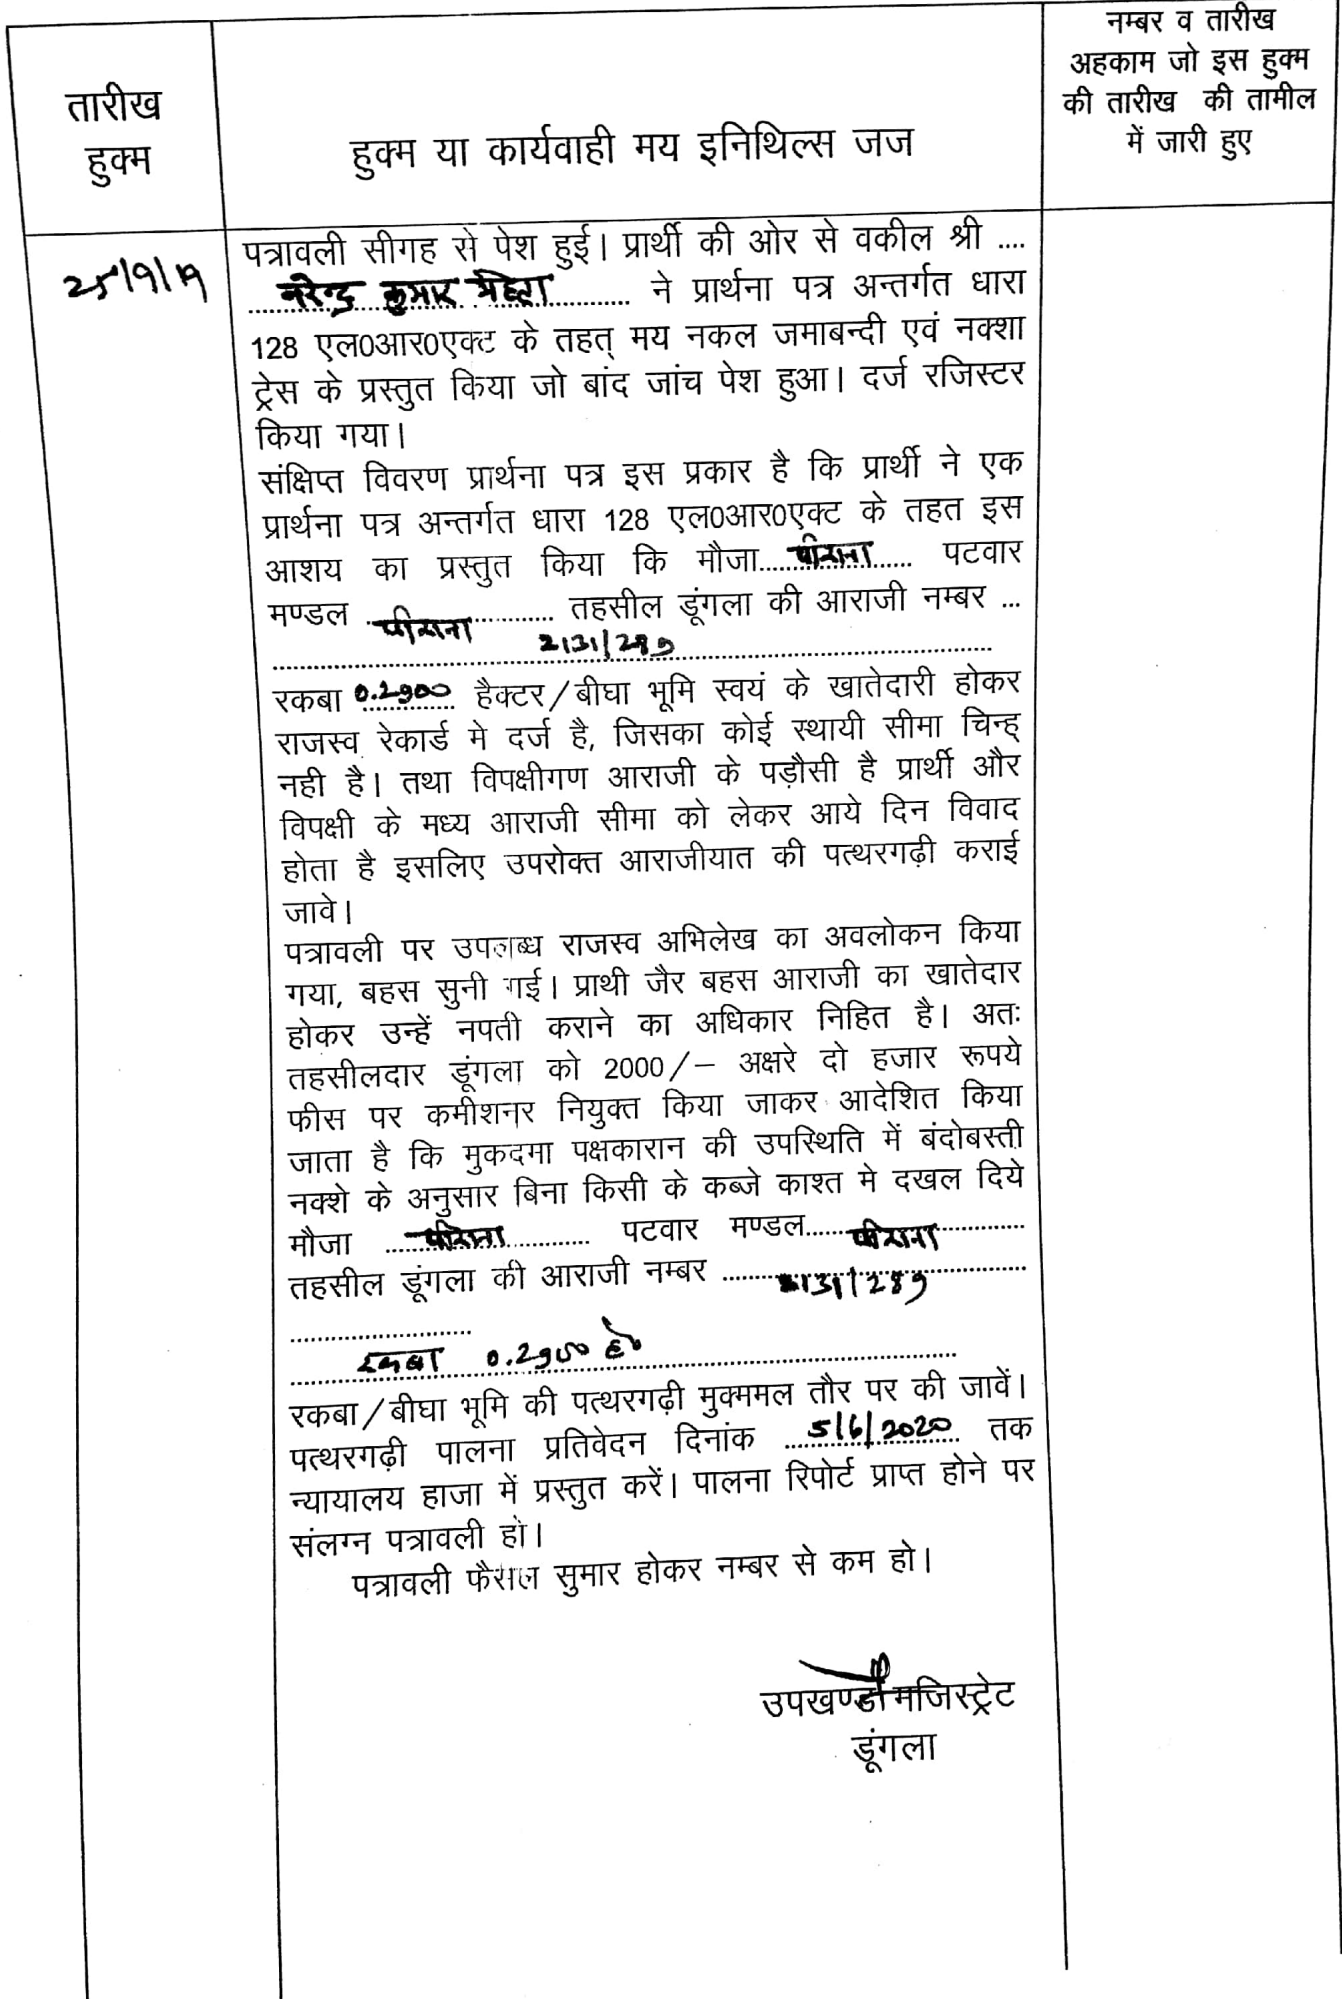 तारीख
हुक्म
हुक्म या कार्यवाही मय इनिथिल्स जज
नम्बर व तारीख
अहकाम जो इस हुक्म
की तारीख की तामील
में जारी हुए
25/9/19
पत्रावली सीगह से पेश हुई। प्रार्थी की ओर से वकील श्री ....
नरेन्द्र कुमार मेहता ने प्रार्थना पत्र अन्तर्गत धारा
128 एल0आर0एक्ट के तहत् मय नकल जमाबन्दी एवं नक्शा
ट्रेस के प्रस्तुत किया जो बांद जांच पेश हुआ। दर्ज रजिस्टर
किया गया।
संक्षिप्त विवरण प्रार्थना पत्र इस प्रकार है कि प्रार्थी ने एक
प्रार्थना पत्र अन्तर्गत धारा 128 एल0आर0एक्ट के तहत इस
आशय का प्रस्तुत किया कि मौजा............ पटवार
मण्डल ............ तहसील डूंगला की आराजी नम्बर ...
2131/289
रकबा 0.2900 हैक्टर/बीघा भूमि स्वयं के खातेदारी होकर
राजस्व रेकार्ड मे दर्ज है, जिसका कोई स्थायी सीमा चिन्ह्
नही है। तथा विपक्षीगण आराजी के पड़ौसी है प्रार्थी और
विपक्षी के मध्य आराजी सीमा को लेकर आये दिन विवाद
होता है इसलिए उपरोक्त आराजीयात की पत्थरगढ़ी कराई
जावे।
पत्रावली पर उपलब्ध राजस्व अभिलेख का अवलोकन किया
गया, बहस सुनी गई। प्राथी जैर बहस आराजी का खातेदार
होकर उन्हें नपती कराने का अधिकार निहित है। अतः
तहसीलदार डूंगला को 2000/– अक्षरे दो हजार रूपये
फीस पर कमीशनर नियुक्त किया जाकर आदेशित किया
जाता है कि मुकदमा पक्षकारान की उपस्थिति में बंदोबस्ती
नक्शे के अनुसार बिना किसी के कब्जे काश्त मे दखल दिये
मौजा ............ पटवार मण्डल............
तहसील डूंगला की आराजी नम्बर 2131/289
रकबा 0.2900 है०
रकबा/बीघा भूमि की पत्थरगढ़ी मुक्ममल तौर पर की जावें।
पत्थरगढ़ी पालना प्रतिवेदन दिनांक 5/6/2020 तक
न्यायालय हाजा में प्रस्तुत करें। पालना रिपोर्ट प्राप्त होने पर
संलग्न पत्रावली हो।
पत्रावली फैसल सुमार होकर नम्बर से कम हो।
उपखण्ड मजिस्ट्रेट
डूंगला